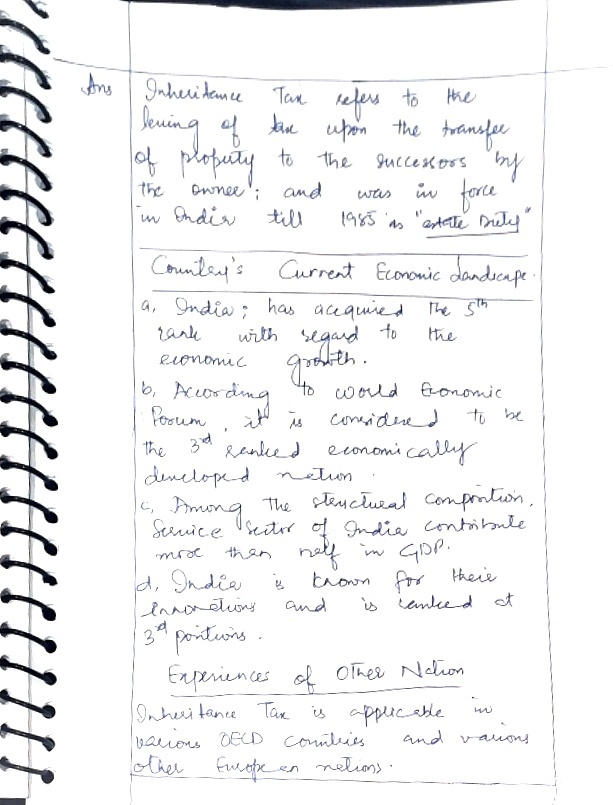 Ans Inheritance Tax refers to the
leving of tax upon the transfer
of property to the successors by
the owner; and was in force
in India till 1985 as "estate Duty"
Country's Current Economic Landscape.
a, India; has acequired the 5th
rank with regard to the
economic growth.
b, According to world Economic
Forum, it is considered to be
the 3rd ranked economically
developed nation.
c, Among the structural composition,
Service Sector of India contribute
more than half in GDP.
d, India is known for their
innovations and is ranked at
3rd positions.
Experiences of Other Nation
Inheritance Tax is applicable in
various OECD countries and various
other European nations.